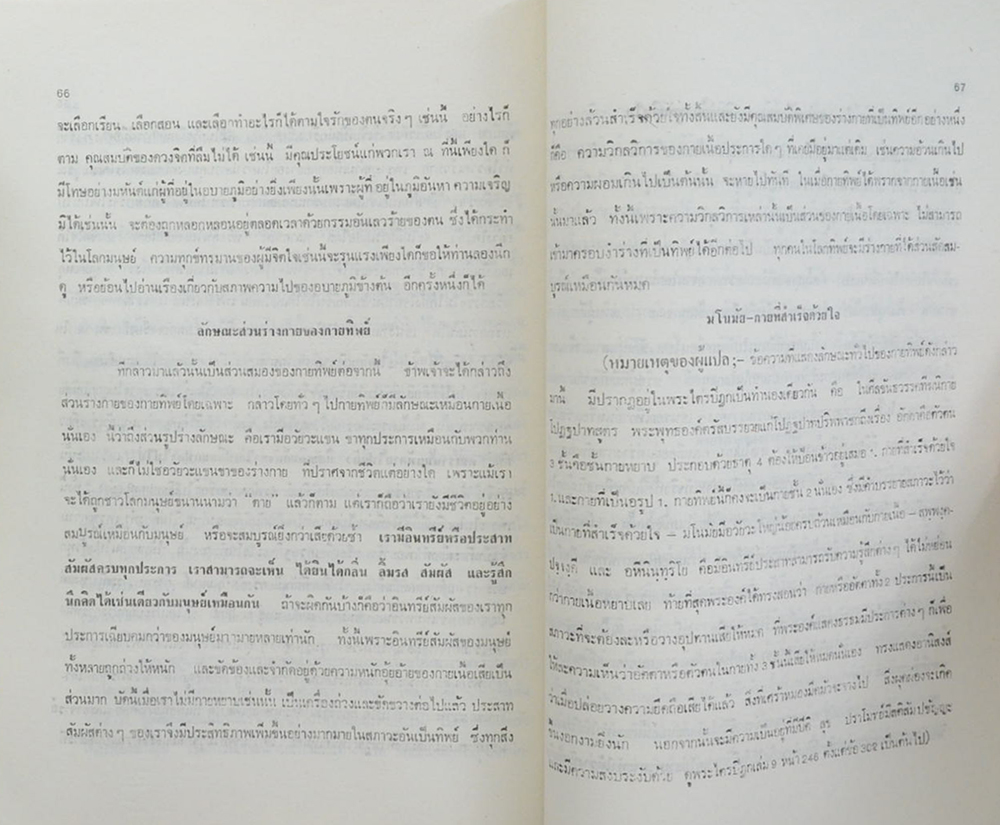 66
จะเลือกเรียน เลือกสอน และเลือกทำอะไรก็ได้ตามใจรักของตนจริง ๆ เช่นนี้ อย่างไรก็
ตาม คุณสมบัติของดวงจิตที่ลืมไม่ได้ เช่นนี้ มีคุณประโยชน์แก่พวกเรา ณ ที่นี้เพียงใด ก็
มีโทษอย่างมหันต์แก่ผู้ที่อยู่ในอบายภูมิอย่างยิ่งเพียงนั้นเพราะผู้ที่ อยู่ในภูมิอันหา ความเจริญ
มิได้เช่นนั้น จะต้องถูกหลอกหลอนอยู่ตลอดเวลาด้วยกรรมอันเลวร้ายของตน ซึ่งได้กระทำ
ไว้ในโลกมนุษย์ ความทุกข์ทรมานของผู้มีจิตใจเช่นนี้จะรุนแรงเพียงใดก็ขอให้ท่านลองนึก
ดู หรือย้อนไปอ่านเรื่องเกี่ยวกับสภาพความไปของอบายภูมิข้างต้น อีกครั้งหนึ่งก็ได้
ลักษณะส่วนร่างกายของกายทิพย์
ที่กล่าวมาแล้วนั้นเป็นส่วนสมองของกายทิพย์ต่อจากนี้ ข้าพเจ้าจะได้กล่าวถึง
ส่วนร่างกายของกายทิพย์โดยเฉพาะ กล่าวโดยทั่ว ๆ ไปกายทิพย์ก็มีลักษณะเหมือนกายเนื้อ
นั่นเอง นี่ว่าถึงส่วนรูปร่างลักษณะ คือเรามีอวัยวะแขน ขาทุกประการเหมือนกับพวกท่าน
นั่นเอง และก็ไม่ใช่อวัยวะแขนขาของร่างกาย ที่ปราศจากชีวิตแต่อย่างใด เพราะแม้เรา
จะได้ถูกชาวโลกมนุษย์ขนานนามว่า "ตาย" แล้วก็ตาม แต่เราก็ถือว่าเรายังมีชีวิตอยู่อย่าง
สมบูรณ์เหมือนกับมนุษย์ หรือจะสมบูรณ์ยิ่งกว่าเสียด้วยซ้ำ เรามีอินทรีย์หรือประสาท
สัมผัสครบทุกประการ เราสามารถจะเห็น ได้ยิน ได้กลิ่น ลิ้มรส สัมผัส และรู้สึก
นึกคิดได้เช่นเดียวกับมนุษย์เหมือนกัน ถ้าจะผิดกันบ้างก็คือว่าอินทรีย์สัมผัสของเราทุก
ประการเฉียบคมกว่าของมนุษย์มากมายหลายเท่านัก ทั้งนี้เพราะอินทรีย์สัมผัสของมนุษย์
ทั้งหลายถูกถ่วงให้หนัก และขัดข้องและจำกัดอยู่ด้วยความหนักอุ้ยอ้ายของกายเนื้อเสียเป็น
ส่วนมาก บัดนี้เมื่อเราไม่มีกายหยาบเช่นนั้น เป็นเครื่องถ่วงและขัดขวางต่อไปแล้ว ประสาท
สัมผัสต่าง ๆ ของเราจึงมีประสิทธิภาพเพิ่มขึ้นอย่างมากมายในสภาวะอันเป็นทิพย์ ซึ่งทุกสิ่ง
67
ทุกอย่างล้วนสำเร็จด้วยใจทั้งสิ้นและยังมีคุณสมบัติพิเศษของร่างกายที่เป็นทิพย์อีกอย่างหนึ่ง
ก็คือ ความวิกลวิการของกายเนื้อประการใด ๆ ที่เคยมีอยู่มาแต่เดิม เช่นความอ้วนเกินไป
หรือความผอมเกินไปเป็นต้นนั้น จะหายไปทันที ในเมื่อกายทิพย์ได้พรากจากกายเนื้อเช่น
นั้นมาแล้ว ทั้งนี้เพราะความวิกลวิการเหล่านั้นเป็นส่วนของกายเนื้อโดยเฉพาะ ไม่สามารถ
เข้ามาครอบงำร่างที่เป็นทิพย์ได้อีกต่อไป ทุกคนในโลกทิพย์จะมีร่างกายที่ได้ส่วนสัดสม-
บูรณ์เหมือนกันหมด
มโนมัย-กายที่สำเร็จด้วยใจ
(หมายเหตุของผู้แปล ;- ข้อความที่แสดงลักษณะทั่วไปของกายทิพย์ดังกล่าว
มานี้ มีปรากฏอยู่ในพระไตรปิฎกเป็นทำนองเดียวกัน คือ ในศีลขันธวรรคทีฆนิกาย
โปฏฐปาทสูตร พระพุทธองค์ตรัสบรรยายแก่โปฏฐปาทปริพพาชกถึงเรื่อง อัตตาคือตัวตน
3 ชั้นคือชั้นกายหยาบ ประกอบด้วยธาตุ 4 ต้องให้ป้อนข้าวอยู่เสมอ 1. กายที่สำเร็จด้วยใจ
1. และกายที่เป็นอรูป 1. กายทิพย์นี้ก็คงจะเป็นกายชั้น 2 นั่นเอง ซึ่งมีคำบรรยายสภาวะไว้ว่า
เป็นกายที่สำเร็จด้วยใจ - มโนมัยมีอวัยวะใหญ่น้อยครบถ้วนเหมือนกับกายเนื้อ - สพฺพงฺค-
ปจฺจงฺคี และ อหีนินฺทฺริโย คือมีอินทรีย์ประสาทสามารถรับความรู้สึกต่าง ๆ ได้ไม่หย่อน
กว่ากายเนื้อหยาบเลย ท้ายที่สุดพระองค์ได้ทรงสอนว่า กายหรืออัตตาทั้ง 2 ประการนี้เป็น
สภาวะที่จะต้องละหรือวางอุปาทานเสียให้หมด ที่พระองค์แสดงธรรมมีประการต่าง ๆ ก็เพื่อ
ให้ละความเห็นว่าอัตตาหรือตัวตนในกายทั้ง 3 ชั้นนี้เสียให้หมดนั่นเอง ทรงแสดงอานิสงส์
ว่าเมื่อปล่อยวางความยึดถือเสียได้แล้ว สิ่งที่เศร้าหมองมีคมัวจะจางไป สิ่งผุดผ่องจะเกิด
ขึ้นงอกงามยิ่งนัก นอกจากนั้นจะมีความเป็นอยู่ที่มีปีติ สุข ปราโมทย์มีสติสัมปชัญญะ
และมีความสงบระงับด้วย ดูพระไตรปิฎกเล่ม 9 หน้า 246 ตั้งแต่ข้อ 302 เป็นต้นไป)